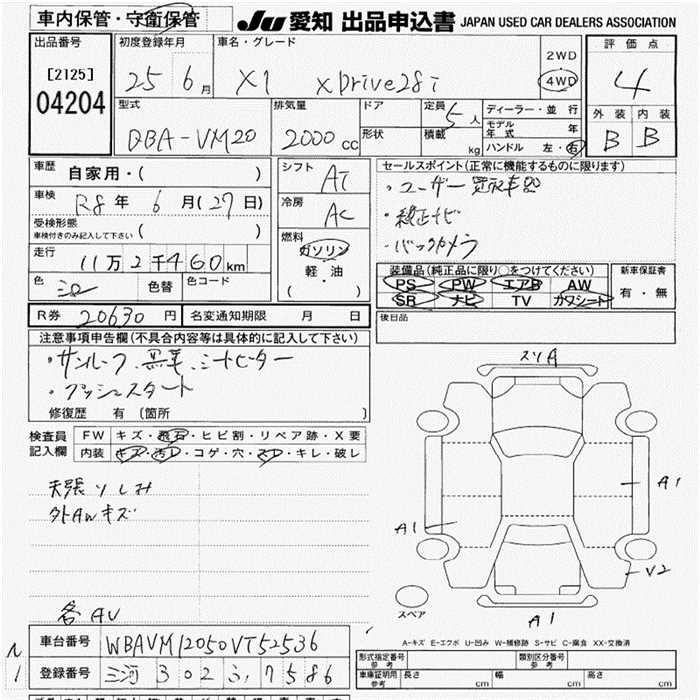 車内保管・守衛保管
JU 愛知 出品申込書 JAPAN USED CAR DEALERS ASSOCIATION
出品番号
[2125]
04204
初度登録年月
25 6月
車名・グレード
X1 xDrive28i
2WD
4WD
評価点
4
外装 内装
B B
型式
DBA-VM20
排気量
2000 cc
ドア
形状
定員 5人
積載 kg
ディーラー・並行
モデル年式 年
ハンドル 左・右
車歴 自家用・( )
車検 R8年 6月(27日)
受検形態
車検付きのみ記入して下さい ( )
走行 11万2千460km
色 シロ 色替 色コード
シフト AT
冷房 AC
燃料
ガソリン
軽・油
( ・ )
セールスポイント(正常に機能するものに限ります)
・ユーザー買取車
・純正ナビ
・バックカメラ
装備品(純正品に限り○をつけてください)
PS PW エアB AW
SR ナビ TV カワシート
新車保証書
有・無
R券 20630円 名変通知期限 月 日
後日品
注意事項申告欄(不具合内容等は具体的に記入して下さい)
・サンルーフ、黒革、シートヒーター
・プッシュスタート
修復歴 有 [箇所 ]
検査員記入欄
FW キズ・飛石・ヒビ割・リペア跡・X要
内装 キズ・汚レ・コゲ・穴・スレ・キレ・破レ
天張りしみ
外AWキズ
各AU
スリA
A1
A1
V2
A1
スペア
A-キズ E-エクボ U-凹み W-補修跡 S-サビ C-腐食 XX-交換済
車台番号 WBAVM12050VT52536
登録番号 三河 302 3,7586
形式指定番号 参考
類別区分番号 参考
車庫証明用 参考 長さ cm 幅 cm 高さ cm